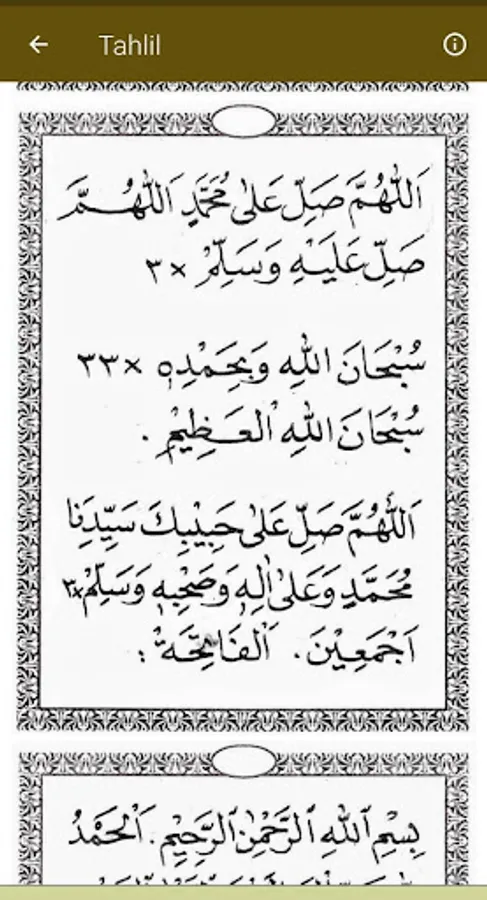 Tahlil
اَللّٰهُمَّ صَلِّ عَلٰى مُحَمَّدٍ اَللّٰهُمَّ
صَلِّ عَلَيْهِ وَسَلِّمْ ×٣
سُبْحَانَ اللهِ وَبِحَمْدِهٖ ×٣٣
سُبْحَانَ اللهِ الْعَظِيْمِ .
اَللّٰهُمَّ صَلِّ عَلٰى حَبِيْبِكَ سَيِّدِنَا
مُحَمَّدٍ وَعَلٰى اٰلِهٖ وَصَحْبِهٖ وَسَلِّمْ ×٣
اَجْمَعِيْنَ . اَلْفَاتِحَةْ :
بِسْمِ اللهِ الرَّحْمٰنِ الرَّحِيْمِ . اَلْحَمْدُ